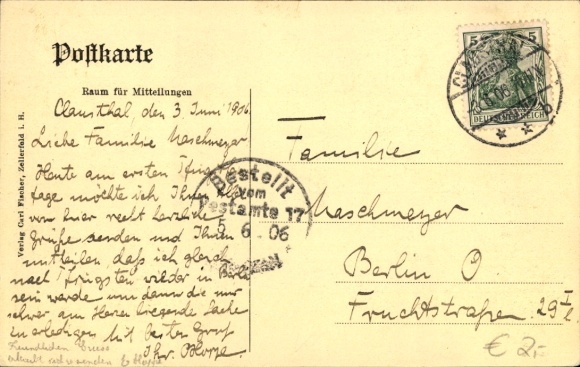 Postkarte
Raum für Mitteilungen
Clausthal, den 3. Juni 1906
Liebe Familie Maschmeyer
Heute am ersten Pfingst
tage möchte ich Ihnen
von hier recht herzliche
Grüße senden und Ihnen
mitteilen daß ich gleich
nach Pfingsten wieder in
sein werde um dann die mir
schwer am Herzen liegende Sache
zu erledigen Mit besten Gruß
Ihr
Freundlichen Gruss
Verlag Carl Fischer, Zellerfeld i. H.
Bestellt
vom
Postamte 17
5. 6. 06
5 5
DEUTSCHES REICH
CLAUSTHAL
Familie
Maschmeyer
Berlin O.
Fruchtstraße 29 I
€ 2,-